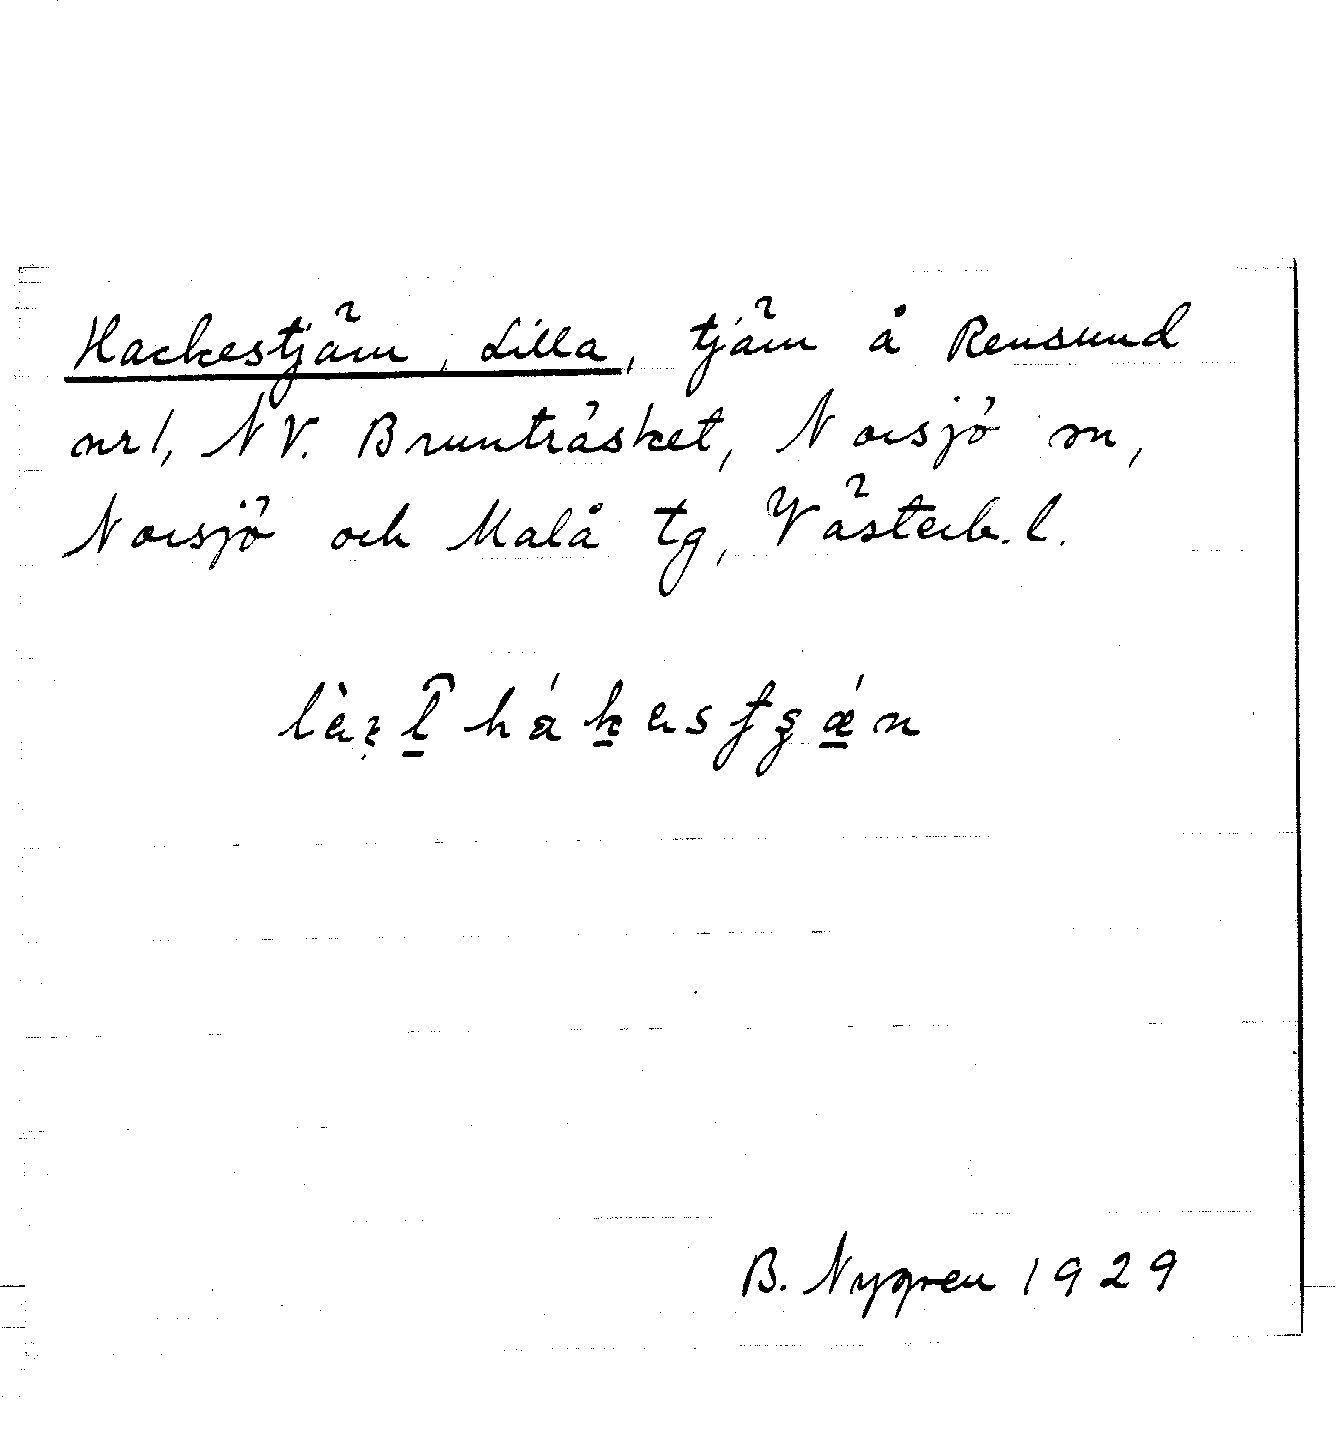 Hackestjärn, Lilla, tjärn å Rensund
nr 1, NV. Bruntråsket, Norsjö sn,
Norsjö och Malå tg, Västerb. l.
B. Nygren 1929